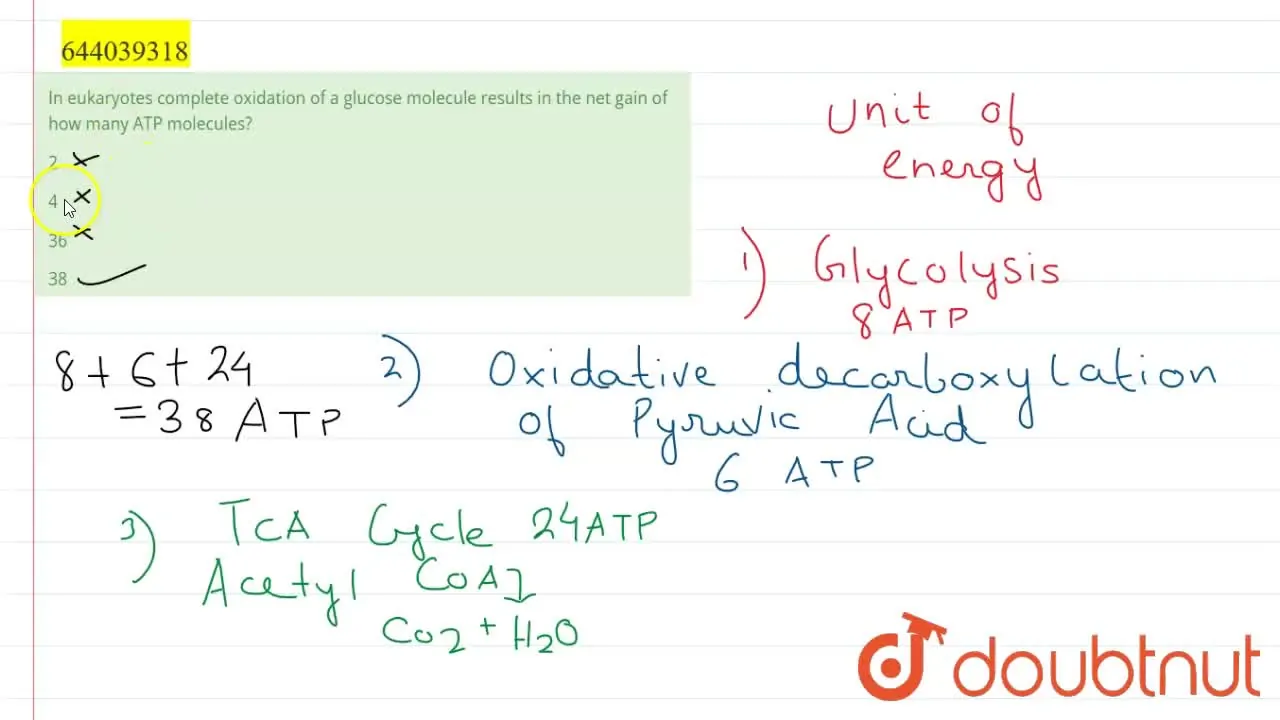 644039318
In eukaryotes complete oxidation of a glucose molecule results in the net gain of
how many ATP molecules?
2
4
36
38
Unit of
energy
1) Glycolysis
8 ATP
8 + 6 + 24
= 38 ATP
2) Oxidative decarboxylation
of Pyruvic Acid
6 ATP
3) TCA Cycle 24 ATP
Acetyl CoA
CO2 + H2O
doubtnut